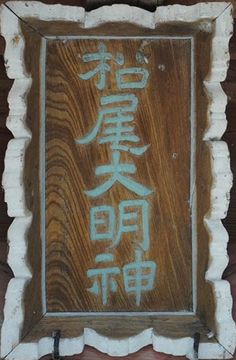 松尾大明神